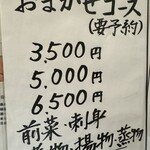 おまかせコース
(要予約)
3,500円
5,000円
6,500円
前菜・刺身
煮物・揚物・蒸物